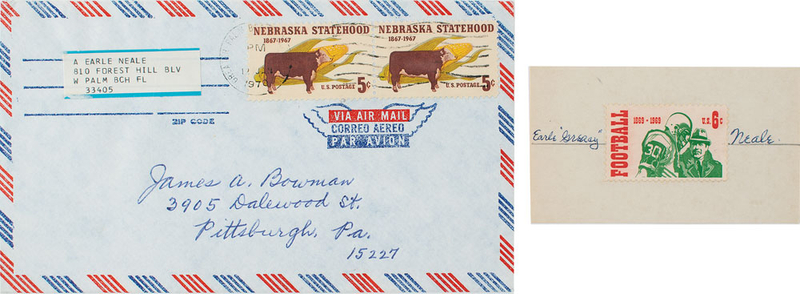 A EARLE NEALE
810 FOREST HILL BLV
W PALM BCH FL
33405
ZIP CODE
PM
197
NEBRASKA STATEHOOD
1867-1967
U.S. POSTAGE 5c
NEBRASKA STATEHOOD
1867-1967
U.S. POSTAGE 5c
VIA AIR MAIL
CORREO AEREO
PAR AVION
James A. Bowman
3905 Dalewood St.
Pittsburgh, Pa.
15227
FOOTBALL
1869-1969
U.S. 6c
30
Earle "Greasy" Neale.